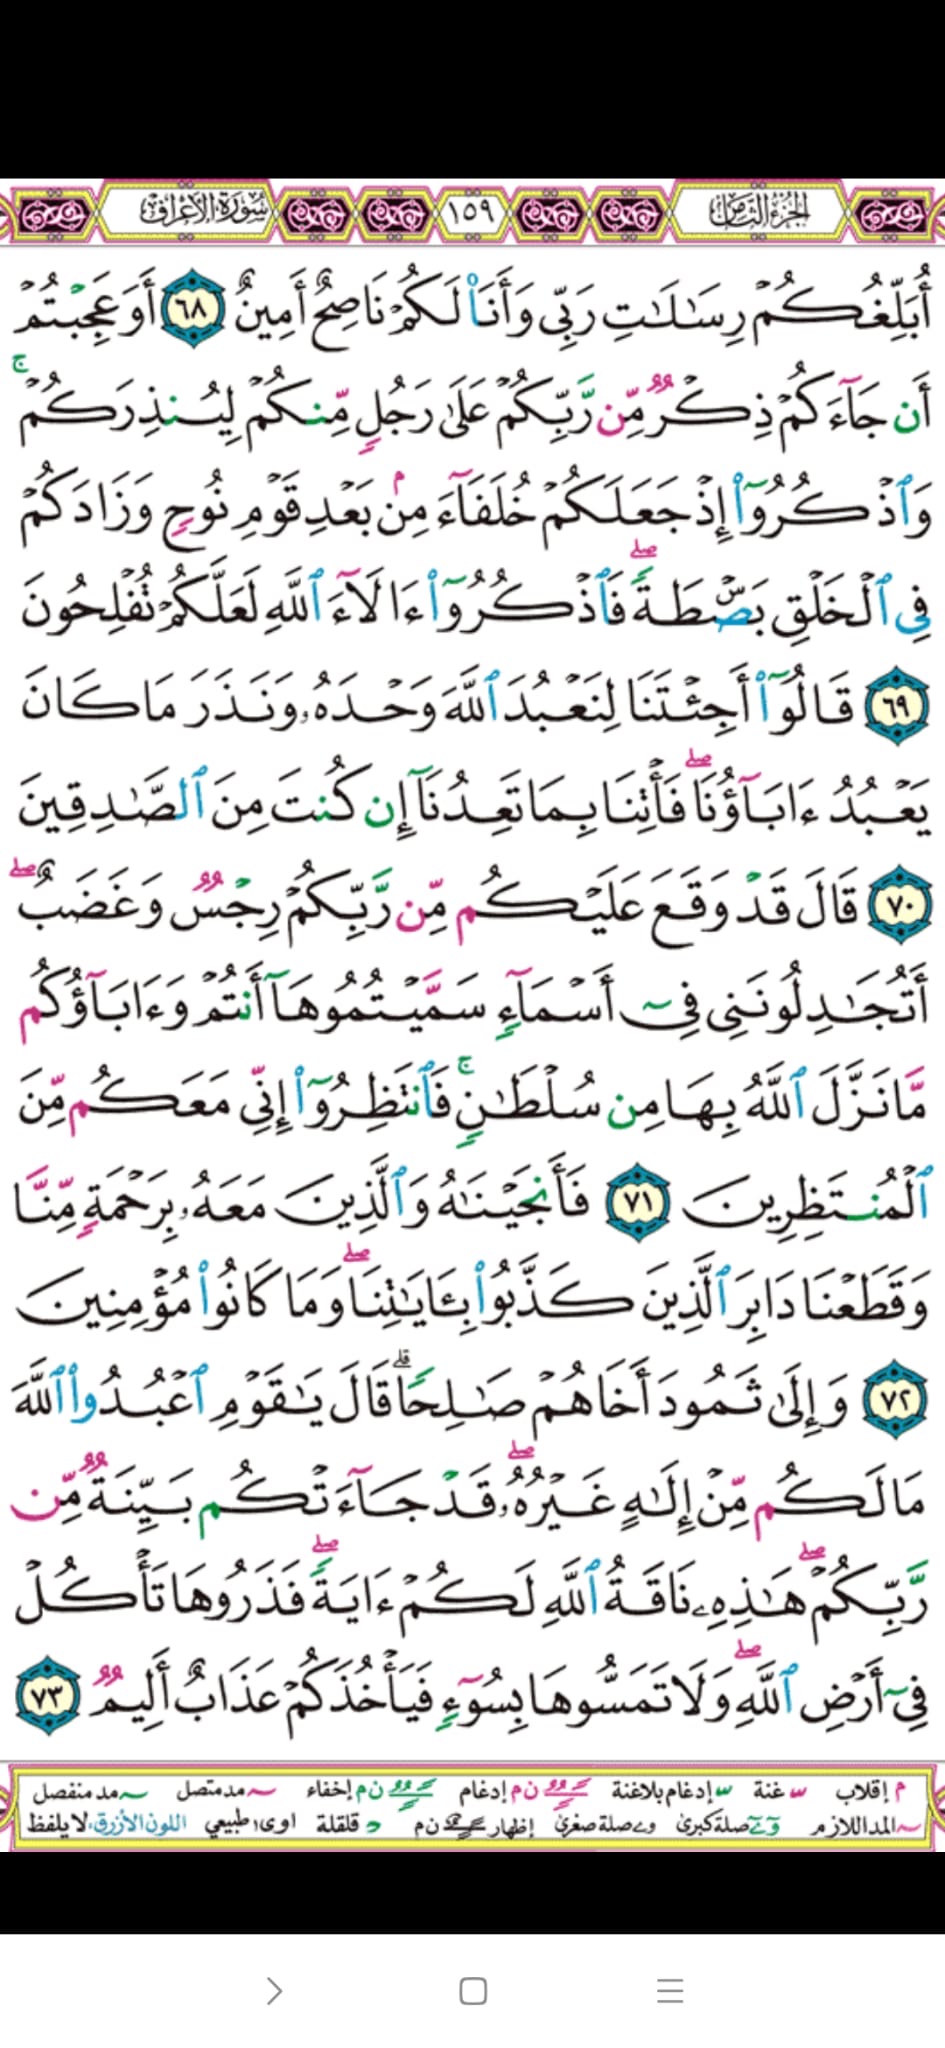 الجزء الثامن
١٥٩
سورة الأعراف
أُبَلِّغُكُمْ رِسَـٰلَـٰتِ رَبِّى وَأَنَا۠ لَكُمْ نَاصِحٌ أَمِينٌ ٦٨ أَوَعَجِبْتُمْ
أَن جَآءَكُمْ ذِكْرٌ مِّن رَّبِّكُمْ عَلَىٰ رَجُلٍ مِّنكُمْ لِيُنذِرَكُمْ ۚ
وَٱذْكُرُوٓا۟ إِذْ جَعَلَكُمْ خُلَفَآءَ مِنۢ بَعْدِ قَوْمِ نُوحٍ وَزَادَكُمْ
فِى ٱلْخَلْقِ بَصْۜطَةً ۖ فَٱذْكُرُوٓا۟ ءَالَآءَ ٱللَّهِ لَعَلَّكُمْ تُفْلِحُونَ
٦٩ قَالُوٓا۟ أَجِئْتَنَا لِنَعْبُدَ ٱللَّهَ وَحْدَهُۥ وَنَذَرَ مَا كَانَ
يَعْبُدُ ءَابَآؤُنَا ۖ فَأْتِنَا بِمَا تَعِدُنَآ إِن كُنتَ مِنَ ٱلصَّـٰدِقِينَ
٧٠ قَالَ قَدْ وَقَعَ عَلَيْكُم مِّن رَّبِّكُمْ رِجْسٌ وَغَضَبٌ ۖ
أَتُجَـٰدِلُونَنِى فِىٓ أَسْمَآءٍ سَمَّيْتُمُوهَآ أَنتُمْ وَءَابَآؤُكُم
مَّا نَزَّلَ ٱللَّهُ بِهَا مِن سُلْطَـٰنٍ ۚ فَٱنتَظِرُوٓا۟ إِنِّى مَعَكُم مِّنَ
ٱلْمُنتَظِرِينَ ٧١ فَأَنجَيْنَـٰهُ وَٱلَّذِينَ مَعَهُۥ بِرَحْمَةٍ مِّنَّا
وَقَطَعْنَا دَابِرَ ٱلَّذِينَ كَذَّبُوا۟ بِـَٔايَـٰتِنَا ۖ وَمَا كَانُوا۟ مُؤْمِنِينَ
٧٢ وَإِلَىٰ ثَمُودَ أَخَاهُمْ صَـٰلِحًا ۗ قَالَ يَـٰقَوْمِ ٱعْبُدُوا۟ ٱللَّهَ
مَا لَكُم مِّنْ إِلَـٰهٍ غَيْرُهُۥ ۖ قَدْ جَآءَتْكُم بَيِّنَةٌ مِّن
رَّبِّكُمْ ۖ هَـٰذِهِۦ نَاقَةُ ٱللَّهِ لَكُمْ ءَايَةً ۖ فَذَرُوهَا تَأْكُلْ
فِىٓ أَرْضِ ٱللَّهِ ۖ وَلَا تَمَسُّوهَا بِسُوٓءٍ فَيَأْخُذَكُمْ عَذَابٌ أَلِيمٌ ٧٣
م إقلاب س غنة س إدغام بلاغنة ن م إدغام ن م إخفاء مد متصل مد منفصل
المد اللازم صلة كبرى و ے صلة صغرى إظهار ن م قلقلة ا و ى طبيعي اللون الأزرق لا يلفظ